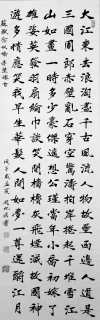 大江東去浪淘盡千古風流人物故壘西邊人道是
三國周郎赤壁亂石穿空驚濤拍岸捲起千堆雪江
山如畫一時多少豪傑遙想公瑾當年小喬初嫁了
雄姿英發羽扇綸巾談笑間檣櫓灰飛煙滅故國神
遊多情應笑我早生華髮人間如夢一尊還酹江月
蘇軾念奴嬌赤壁懷古
戊子歲孟夏 書